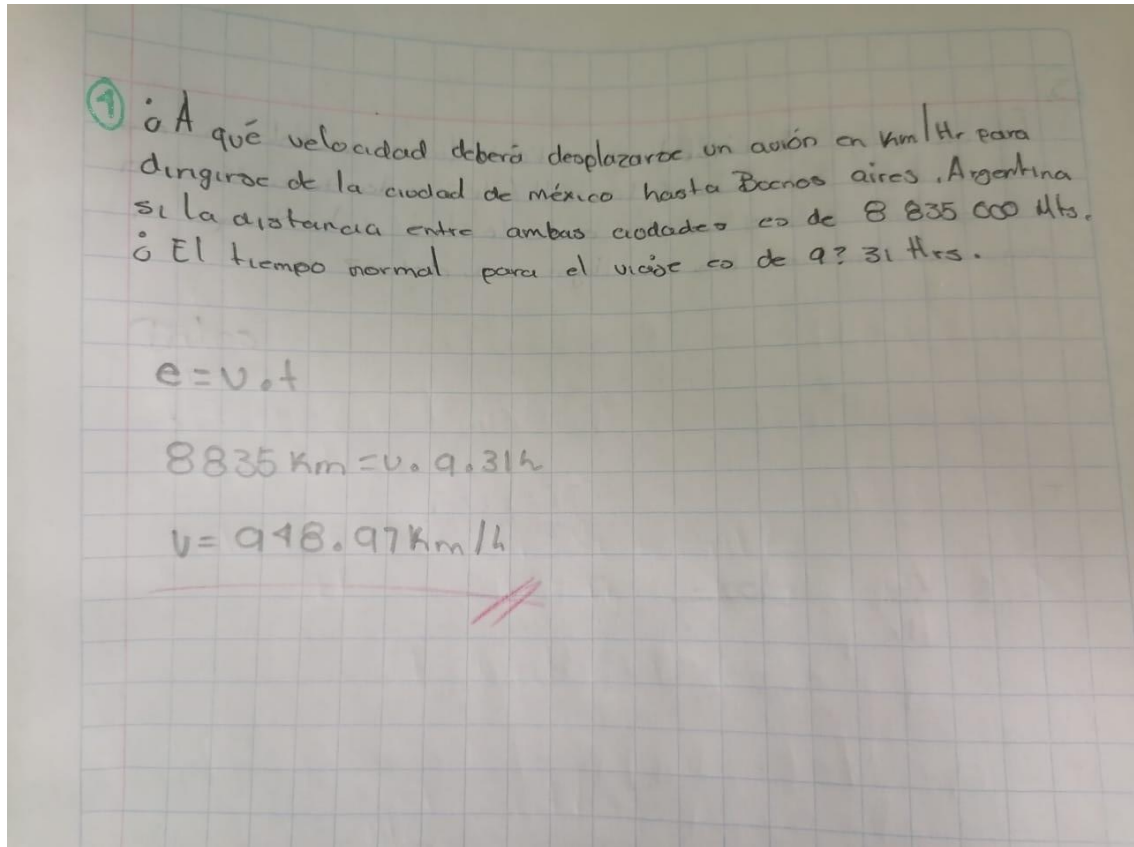 1 ¿A qué velocidad deberá desplazarse un avión en Km/Hr para
dirigirse de la ciudad de méxico hasta Buenos aires, Argentina
si la distancia entre ambas ciudades es de 8 835 000 Mts.
¿El tiempo normal para el viaje es de 9? 31 Hrs.
e = v . t
8835 Km = v . 9.31h
v = 948.97 Km/h